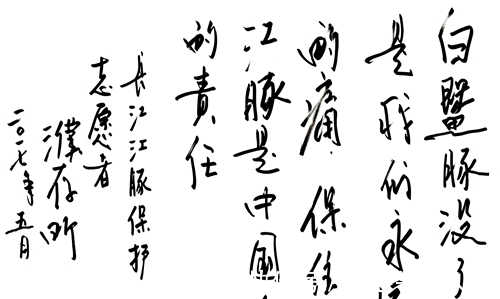 白鱀豚没了
是我们永
的痛 保住
江豚是中国
的責任
长江江豚保护
志愿者
濮存昕
二〇一七年五月